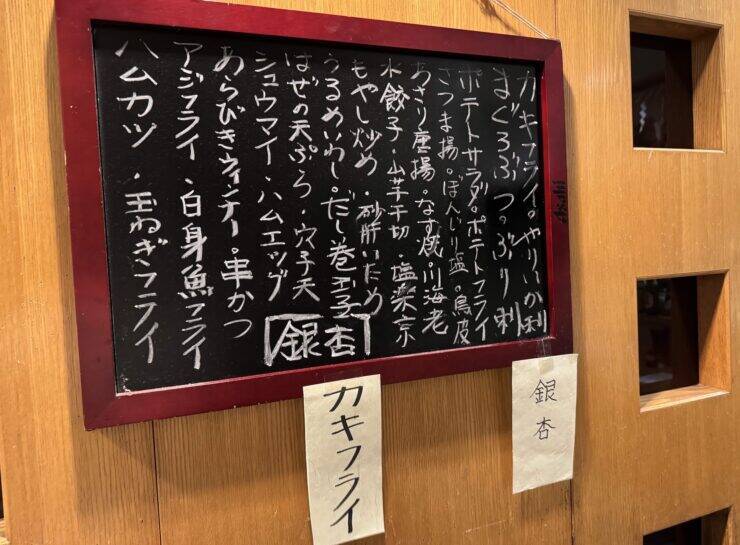 カキフライ。やりいか刺
まぐろぶつ。ぶり刺
ポテトサラダ。ポテトフライ
さつま揚。ぼんじり塩。鳥皮
あさり唐揚。なす焼。川海老
水餃子・山芋千切・塩楽京
もやし炒め・砂肝いため
うるめいわし。だし巻玉子
はぜの天ぷら・穴子天
シュウマイ・ハムエッグ
銀杏
あらびきウィンナー。串かつ
アジフライ・白身魚フライ
ハムカツ・玉ねぎフライ
カキフライ
銀杏